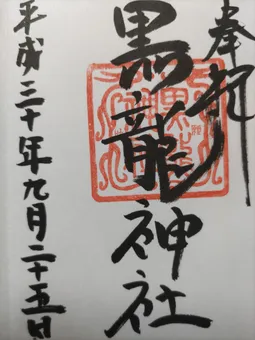 奉祀
黒龍神社
平成三十年九月二十五日